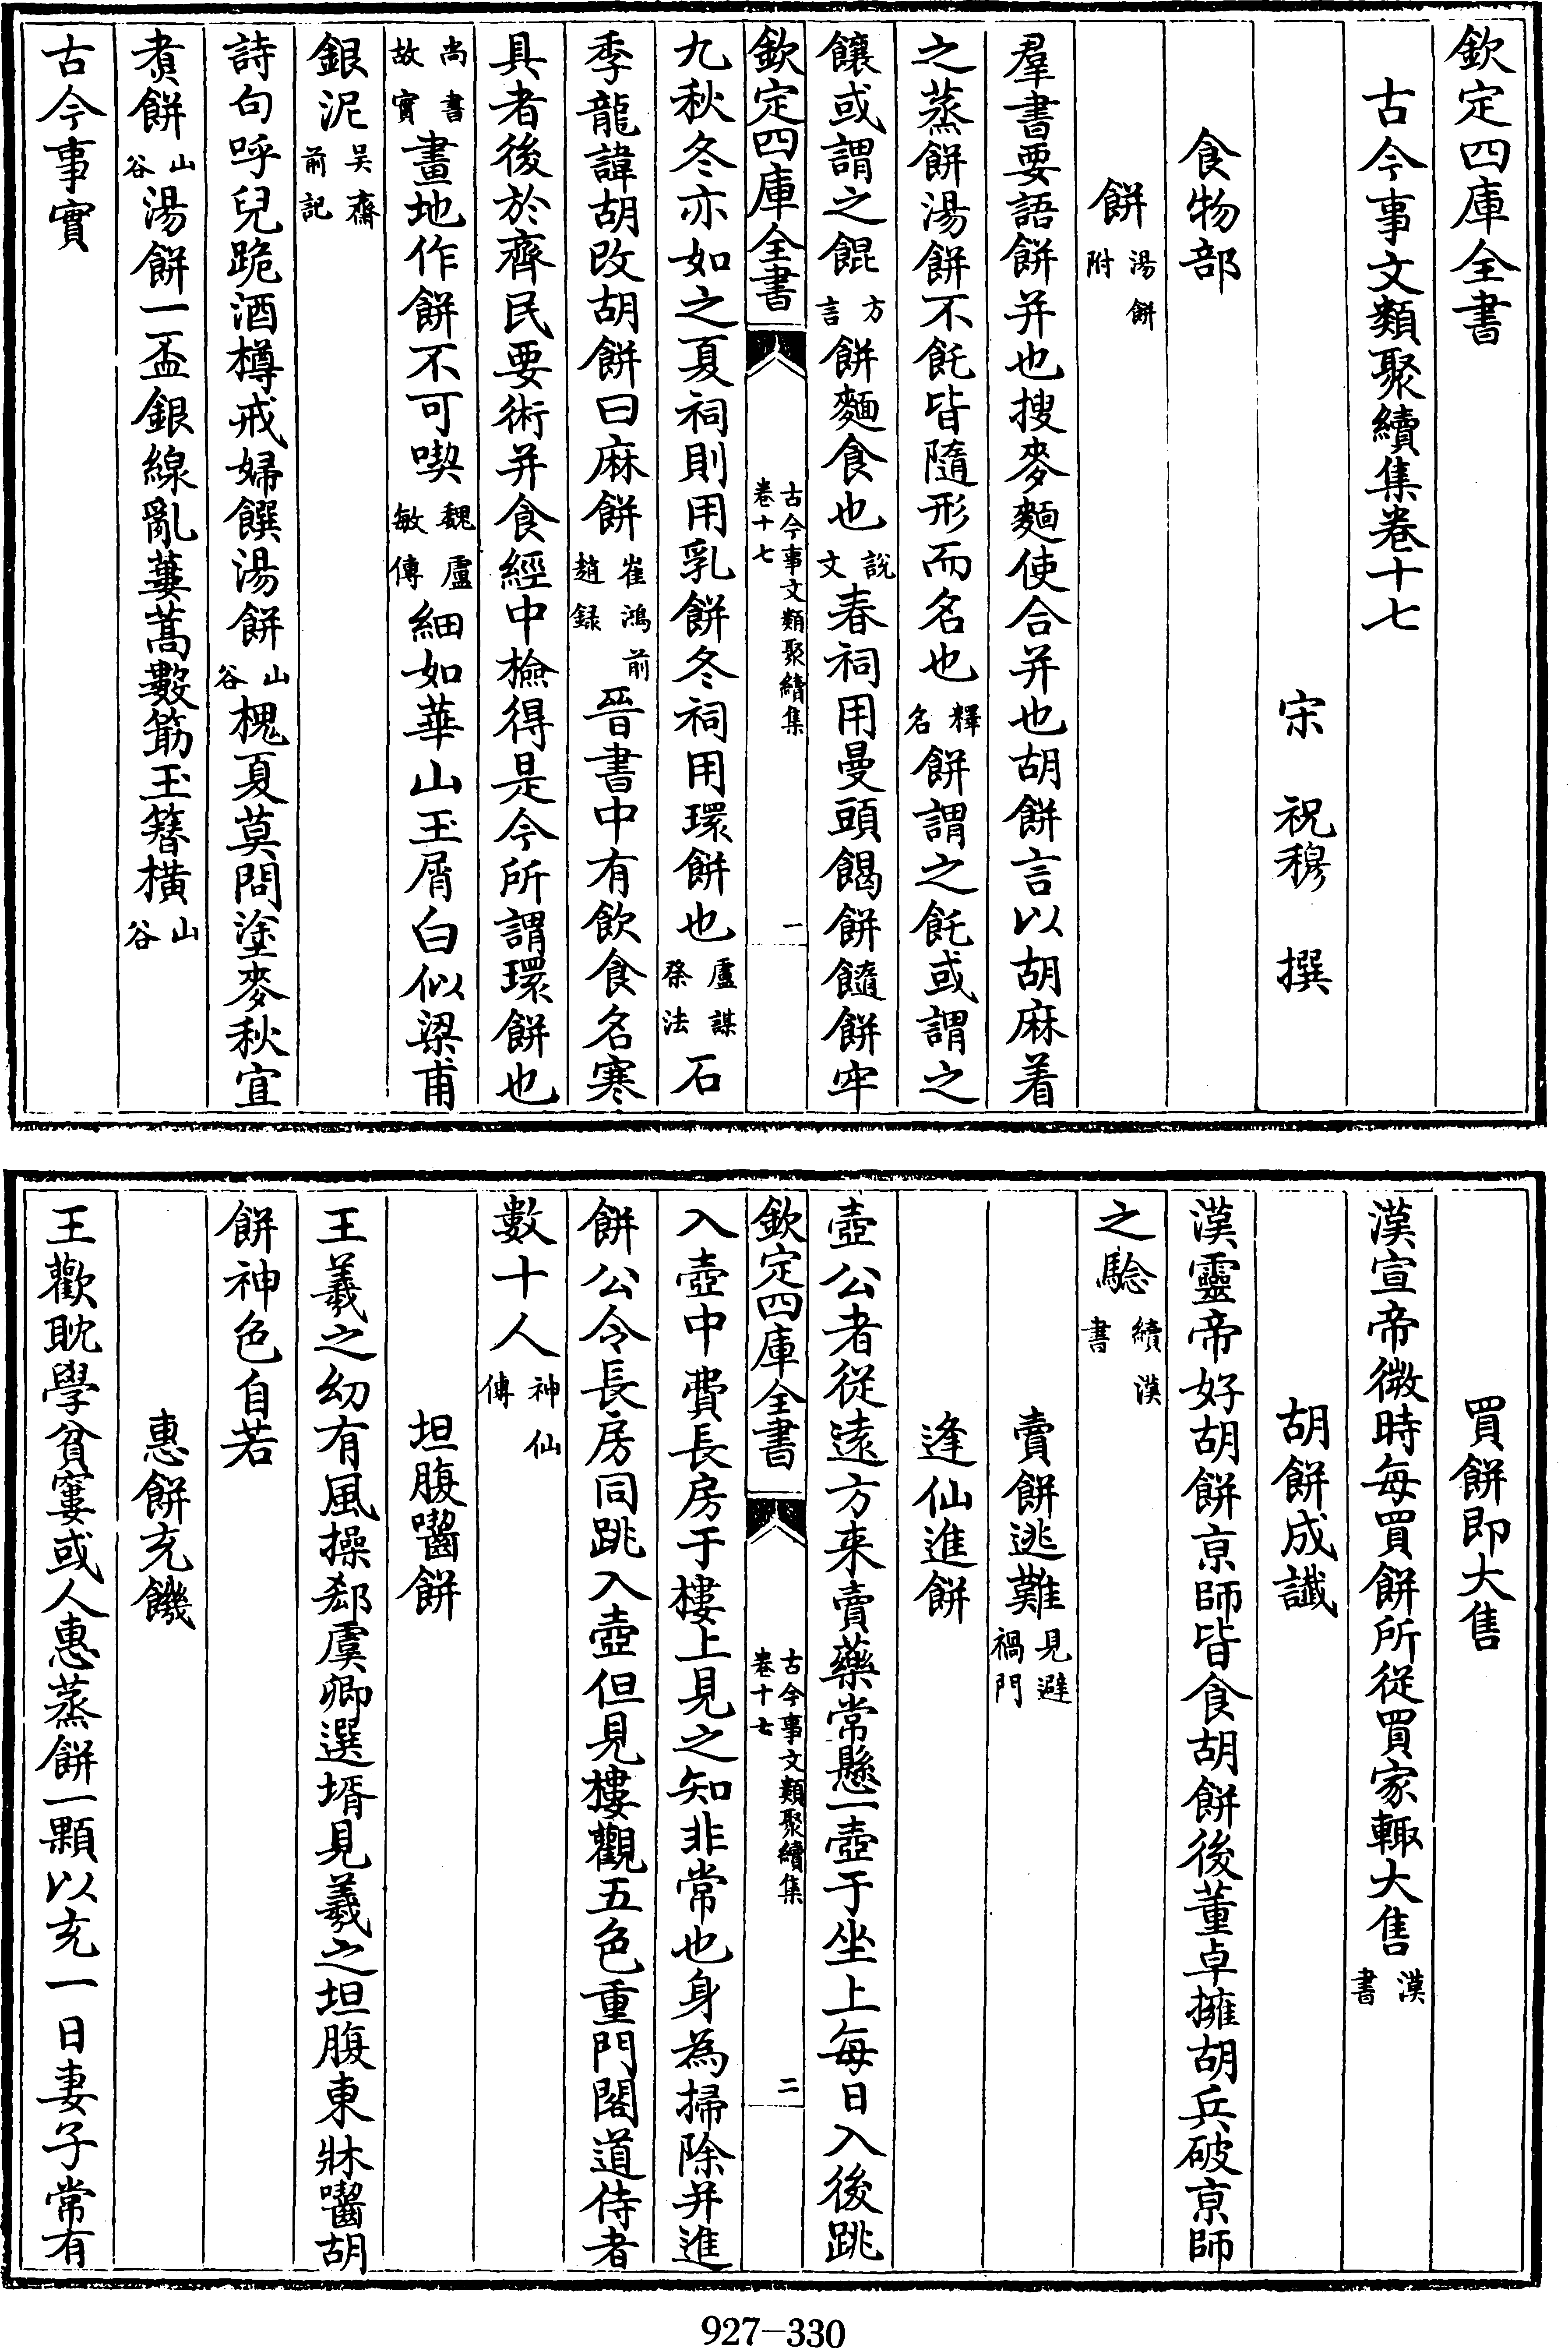 欽定四庫全書
古今事文類聚續集卷十七
宋 祝穆 撰
食物部
餅湯餅附
羣書要語餅并也搜麥麵使合并也胡餅言以胡麻着
之蒸餅湯餅不飥皆隨形而名也釋名餅謂之飥或謂之
餦或謂之餛方言餅麵食也說文春祠用曼頭餲餅髓餅牢
九秋冬亦如之夏祠則用乳餅冬祠用環餅也盧諶祭法石
季龍諱胡改胡餅曰麻餅崔鴻前趙録晉書中有飲食名寒
具者後於齊民要術并食經中檢得是今所謂環餅也
尚書故實畫地作餅不可喫魏盧敏傳細如華山玉屑白似梁甫
銀泥吳齋前記
詩句呼兒跪酒樽戒婦饌湯餅山谷槐夏莫問塗麥秋宜
煑餅山谷湯餅一盃銀線亂蔞蒿數筯玉簪橫山谷
古今事實
欽定四庫全書
古今事文類聚續集
卷十七
一
買餅即大售
漢宣帝微時每買餅所從買家輙大售漢書
胡餅成讖
漢靈帝好胡餅京師皆食胡餅後董卓擁胡兵破京師
之騐續漢書
賣餅逃難見避禍門
逢仙進餅
壺公者從遠方来賣藥常懸一壺于坐上每日入後跳
入壺中費長房于樓上見之知非常也身為掃除并進
餅公令長房同跳入壺但見樓觀五色重門閣道侍者
數十人神仙傳
坦腹嚙餅
王羲之幼有風操郄虞卿選壻見羲之坦腹東牀嚙胡
餅神色自若
惠餅充饑
王歡耽學貧窶或人惠蒸餅一顆以充一日妻子常有
欽定四庫全書
古今事文類聚續集
卷十七
二
927-330